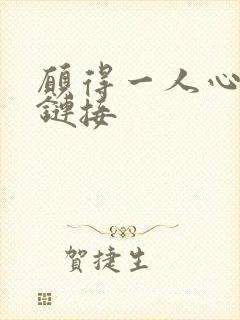 願得一人心
鏈接
賀捷生